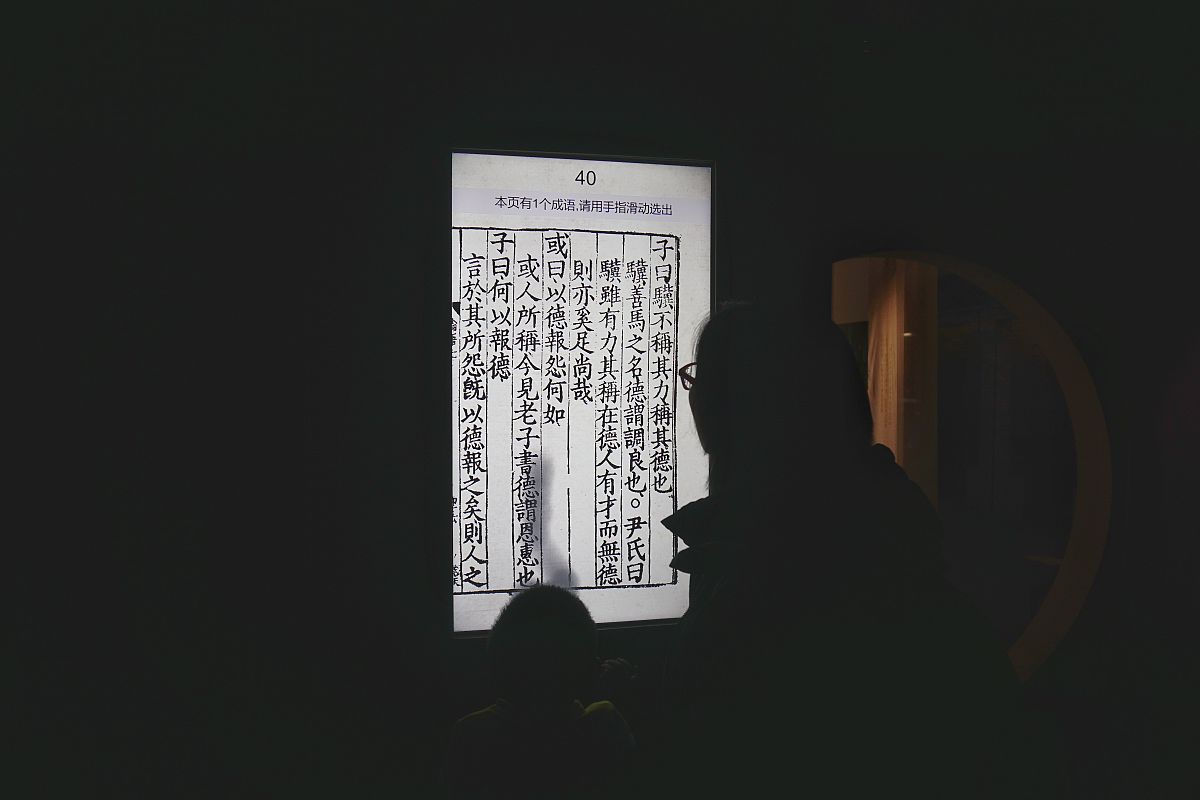 40
本页有1个成语,请用手指滑动选出
子曰驥不稱其力稱其德也
驥善馬之名德謂調良也。尹氏曰
驥雖有力其稱在德人有才而無德
則亦奚足尚哉
或曰以德報怨何如
或人所稱今見老子書德謂恩惠也
子曰何以報德
言於其所怨旣以德報之矣則人之